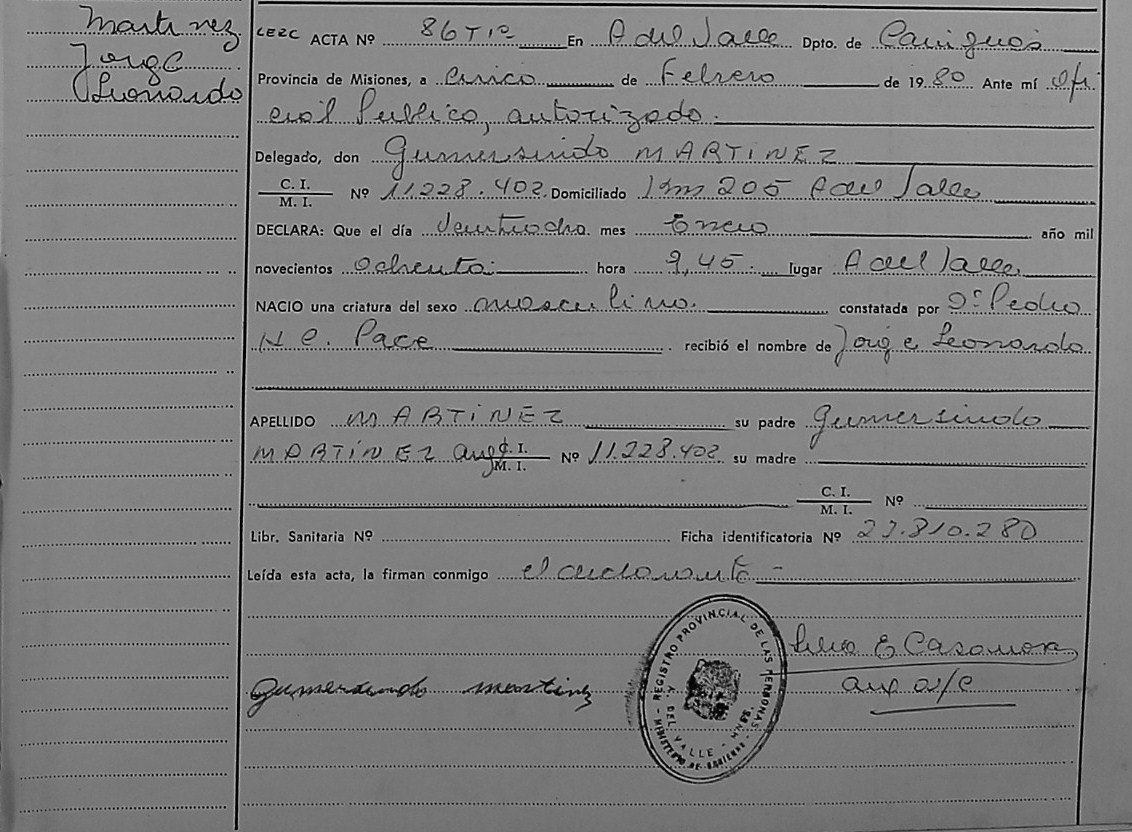 Martinez
Jorge
Leonardo
CEZC ACTA Nº 86 Tº 1º En A del Valle Dpto. de Cainguás
Provincia de Misiones, a Cinco de Febrero de 1980 Ante mí Ofi
cial Publico, autorizado.
Delegado, don Gumersindo MARTINEZ
C. I. / M. I. Nº 11.228.402. Domiciliado Km 205 A del Valle
DECLARA: Que el día Veintiocho mes Enero año mil
novecientos Ochenta hora 9,45. lugar A del Valle
NACIO una criatura del sexo masculino. constatada por Dr. Pedro
N C. Pace recibió el nombre de Jorge Leonardo
APELLIDO MARTINEZ su padre Gumersindo
MARTINEZ arg. C. I. / M. I. Nº 11.228.402 su madre
C. I. / M. I. Nº
Libr. Sanitaria Nº Ficha identificatoria Nº 27.810.280
Leída esta acta, la firman conmigo el declarante -
REGISTRO PROVINCIAL DE LAS PERSONAS - MINISTERIO DE GOBIERNO -
A. DEL VALLE - MNES.
E Casanova
Gumersindo martinez
aux a/c